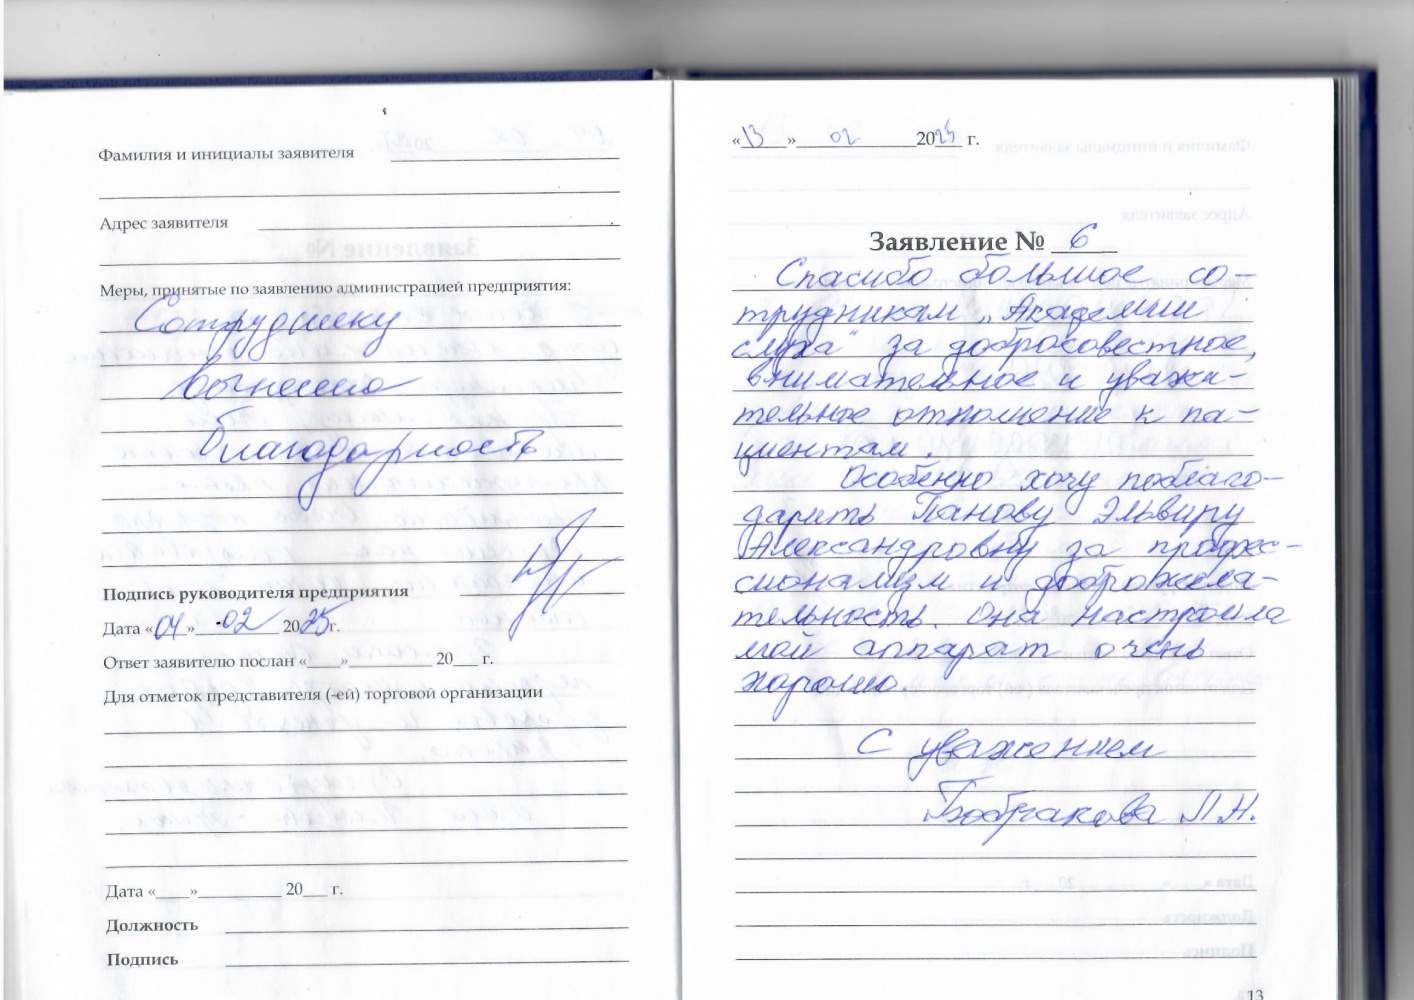 Фамилия и инициалы заявителя
Адрес заявителя
Меры, принятые по заявлению администрацией предприятия:
Сотруднику
вынесена
благодарность
Подпись руководителя предприятия
Дата «04» 02 2025г.
Ответ заявителю послан «___»__________ 20___ г.
Для отметок представителя (-ей) торговой организации
Дата «____»__________ 20___ г.
Должность
Подпись
«13» 02 2025 г.
Заявление № 6
Спасибо большое со-
трудникам „Академии
слуха“ за добросовестное,
внимательное и уважи-
тельное отношение к па-
циентам.
Особенно хочу поблаго-
дарить Панову Эльвиру
Александровну за профес-
сионализм и доброжела-
тельность. Она настроила
мой аппарат очень
хорошо.
С уважением
Бобракова Л.Н.
13